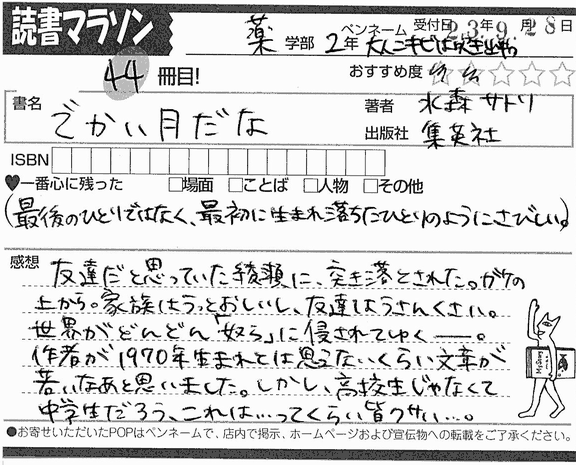 読書マラソン
薬 学部 2年 ペンネーム 大人ニキビは吹き出物
受付日 23年9月28日
44冊目!
おすすめ度 ☆☆☆☆☆
書名 でかい月だな
著者 水森サトリ
出版社 集英社
ISBN
♥一番心に残った □場面 □ことば □人物 □その他
(最後のひとりではなく、最初に生まれ落ちたひとりのようにさびしい。)
感想 友達だと思っていた綾瀬に、突き落とされた。ガケの
上から。家族はうっとおしいし、友達はうさんくさい。
世界がどんどん「奴ら」に侵されてゆく――。
作者が1970年生まれとは思えないくらい文章が
若いなあと思いました。しかし、高校生じゃなくて
中学生だろう、これは…ってくらい皆クサい…。
●お寄せいただいたPOPはペンネームで、店内で掲示、ホームページおよび宣伝物への転載をご了承ください。